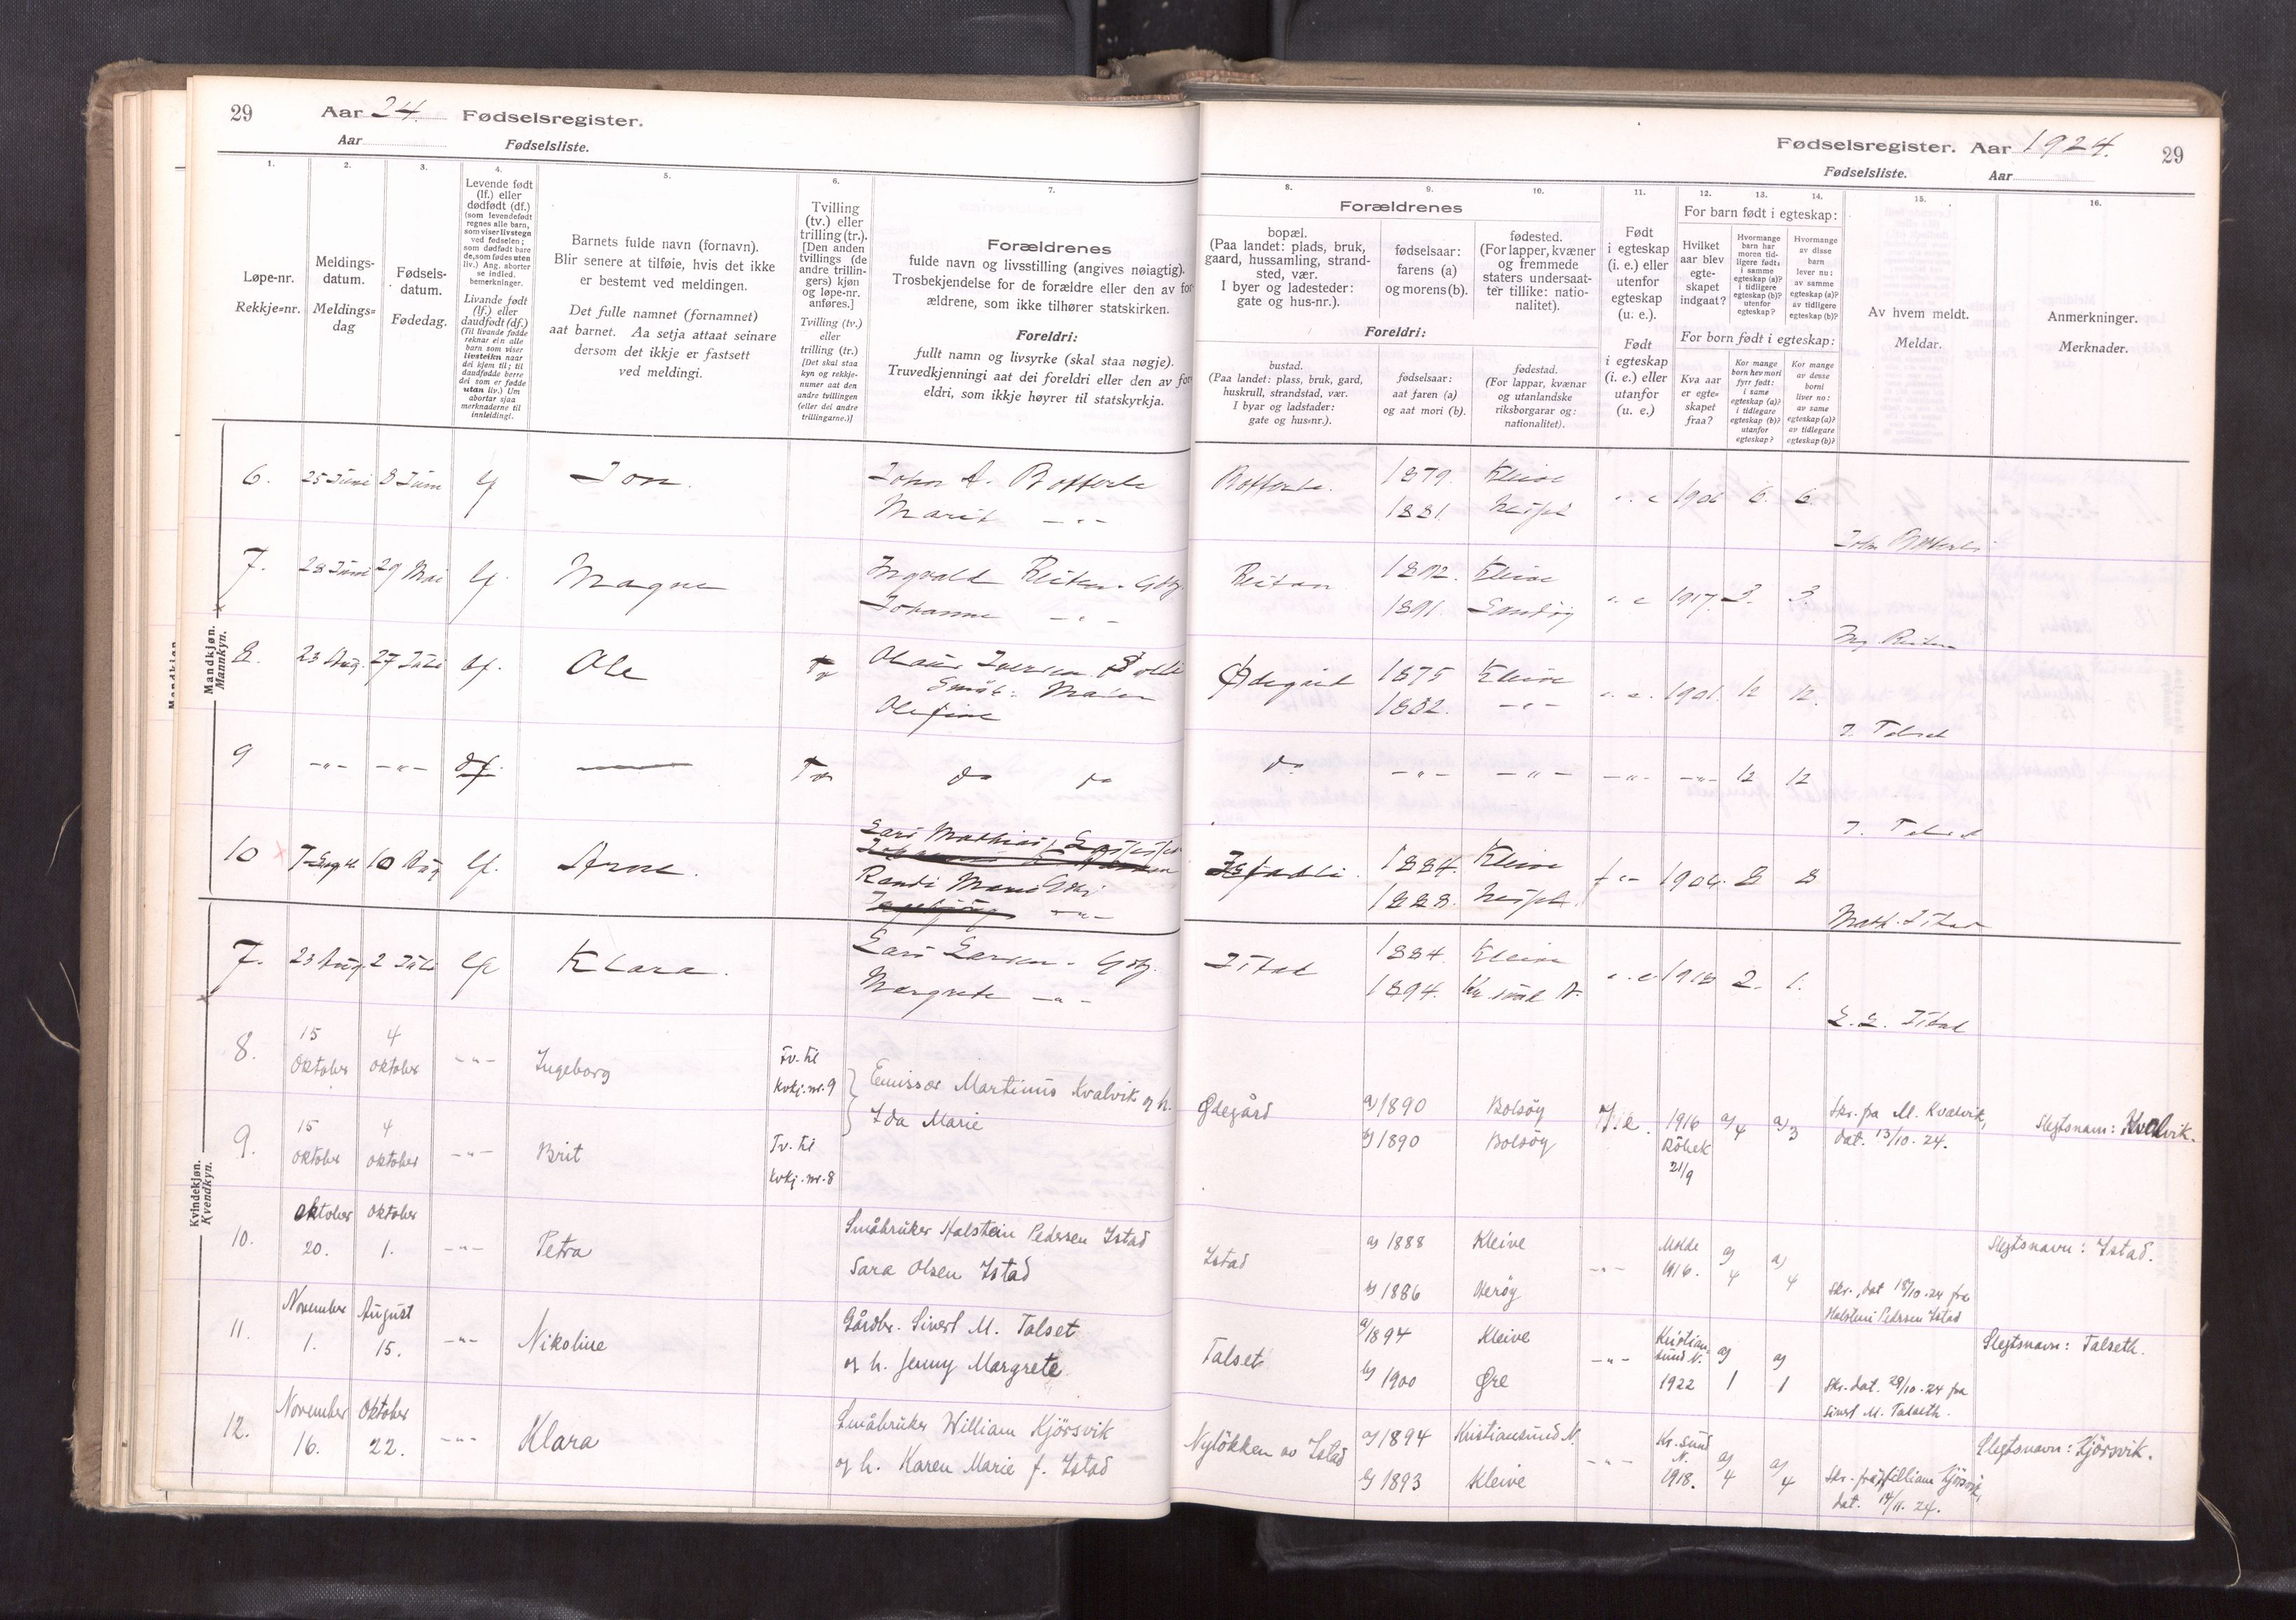 29
Aar 24. Fødselsregister.
Aar Fødselsliste.
1.
Løpe-nr.
Rekkje=nr.
2.
Meldings-
datum.
Meldings=
dag
3.
Fødsels-
datum.
Fødedag.
4.
Levende født
(lf.) eller
dødfødt (df.)
(som levendefødt
regnes alle barn,
som viser livstegn
ved fødselen;
som dødfødt bare
de, som fødes uten
liv.) Ang. aborter
se indled.
bemerkninger.
Livande født
(lf.) eller
daudfødt (df.)
(Til livande fødde
reknar ein alle
barn som viser
livsteikn naar
dei kjem til; til
daudfødde berre
dei som er fødde
utan liv.) Um
abortar sjaa
merknaderne til
innleidingi.
5.
Barnets fulde navn (fornavn).
Blir senere at tilføie, hvis det ikke
er bestemt ved meldingen.
Det fulle namnet (fornamnet)
aat barnet. Aa setja attaat seinare
dersom det ikkje er fastsett
ved meldingi.
6.
Tvilling
(tv.) eller
trilling (tr.).
[Den anden
tvillings (de
andre trillin-
gers) kjøn
og løpe-nr.
anføres.]
Tvilling (tv.)
eller
trilling (tr.)
[Det skal staa
kyn og rekkje-
numer aat den
andre tvillingen
(eller dei andre
trillingarne.)]
7.
Forældrenes
fulde navn og livsstilling (angives nøiagtig).
Trosbekjendelse for de forældre eller den av for-
ældrene, som ikke tilhører statskirken.
Foreldri:
fullt namn og livsyrke (skal staa nøgje).
Truvedkjenningi aat dei foreldri eller den av for-
eldri, som ikkje høyrer til statskyrkja.
Mandkjøn.
Mannkyn.
6. 25 Juni 8 Juni lf Jon John A. Bofferli
Marit -"-
7. 28 Juni 29 Mai lf. Magne Ingvald Reiten. Gbr.
Johanne -"-
8. 23 Aug. 27 Juli df. Ole Tv Olaus Iversen
Småb:
Olefine
9 -"- -"- df. Tv do do
10 7 Sept 10 Aug lf. Arne. Lars Mathias
Randi Gbr
-"-
Kvindekjøn.
Kvendkyn.
7. 23 Aug. 2 Juli lf Klara. Lars Larsen. Gbr.
Margrete -"-
8. 15 Oktober 4 Oktober -"- Ingeborg Tv. til
kvkj. nr. 9 Emissær Martinus Kvalvik og h.
Ida Marie
9. 15 oktober 4 oktober -"- Brit Tv. til
kvkj. nr. 8
10. Oktober 20. Oktober 1. -"- Petra Småbruker Halstein Pedersen Istad
Sara Olsen Istad
11. November 1. August 15. -"- Nikoline Gårdbr. Sivert M. Talset
og h. Jenny Margrete
12. November 16. Oktober 22. -"- Klara Småbruker William Kjörsvik
og h. Karen Marie f. Istad
Fødselsregister. Aar 1924.
Fødselsliste. Aar
29
8.
Forældrenes
bopæl.
(Paa landet: plads, bruk,
gaard, hussamling, strand-
sted, vær.
I byer og ladesteder:
gate og hus-nr.).
Foreldri:
bustad.
(Paa landet: plass, bruk, gard,
huskrull, strandstad, vær.
I byar og ladstader:
gate og hus=nr.).
9.
fødselsaar:
farens (a)
og morens (b).
fødselsaar:
aat faren (a)
og aat mori (b).
10.
fødested.
(For lapper, kvæner
og fremmede
staters undersaat-
ter tillike: natio-
nalitet).
fødestad.
(For lappar, kvænar
og utanlandske
riksborgarar og:
nationalitet).
11.
Født
i egteskap
(i. e.) eller
utenfor
egteskap
(u. e.).
Født
i egteskap
(i. e.) eller
utanfor
(u. e.)
12. 13. 14.
For barn født i egteskap:
Hvilket
aar blev
egte-
skapet
indgaat?
Hvormange
barn har
moren tid-
ligere født:
i samme
egteskap (a)?
i tidligere
egteskap (b)?
utenfor
egteskap?
Hvormange
av disse
barn
lever nu:
av samme
egteskap (a)?
av tidligere
egteskap (b)?
For born født i egteskap:
Kva aar
er egte=
skapet
fraa?
Kor mange
born hev mori
fyrr født:
i same
egteskap (a)?
i tidlegare
egteskap (b)?
utanfor
egteskap?
Kor mange
av desse
borni
liver no:
av same
egteskap (a)?
av tidlegare
egteskap (b)?
15.
Av hvem meldt.
Meldar.
16.
Anmerkninger.
Merknader.
Bofferli. 1879. Kleive i. e 1906 6. 6.
1881. Nesset
John Bofferli
Reiten 1892. Kleive i. e 1917. 3. 3.
1891. Sandöy
Ing. Reiten
Ødegård 1875 Kleive i. e. 1901. 12 12.
1882. -"-
J. Talset
do -"- -"- -"- -"- 12 12
J. Talset
1884. Kleive 8 8
1888. Nesset.
Math. Istad
Istad 1884. Kleive i. e. 1918 2. 1.
1894. Kr. sund N.
L. L. Istad
Ødegård a) 1890 Bolsöy i. e. 1916 a) 4 a) 3 Skr. fra M. Kvalvik,
b) 1890 Bolsöy Röbek 21/9 dat. 13/10. 24. Slegtsnavn: Kvalvik.
Istad a) 1888 Kleive -"- Molde 1916. a) 4 a) 4 Slegtsnavn: Istad.
b) 1886 Veröy Skr., dat 18/10-24 fra
Halstein Pedersen Istad
Talset a) 1894 Kleive -"- Kristian-
sund N. a) a) Slegtsnavn: Talseth.
b) 1900 Øre 1922 1 1 Skr. dat. 29/10-24 fra
Sivert M. Talseth.
Nylökken av Istad a) 1894 Kristiansund N. -"- Kr. sund N. a) 4 a) 4 Slegtsnavn: Kjörsvik.
b) 1893 Kleive 1918. Skr. frå William Kjörsvik,
dat. 14/11. 24.